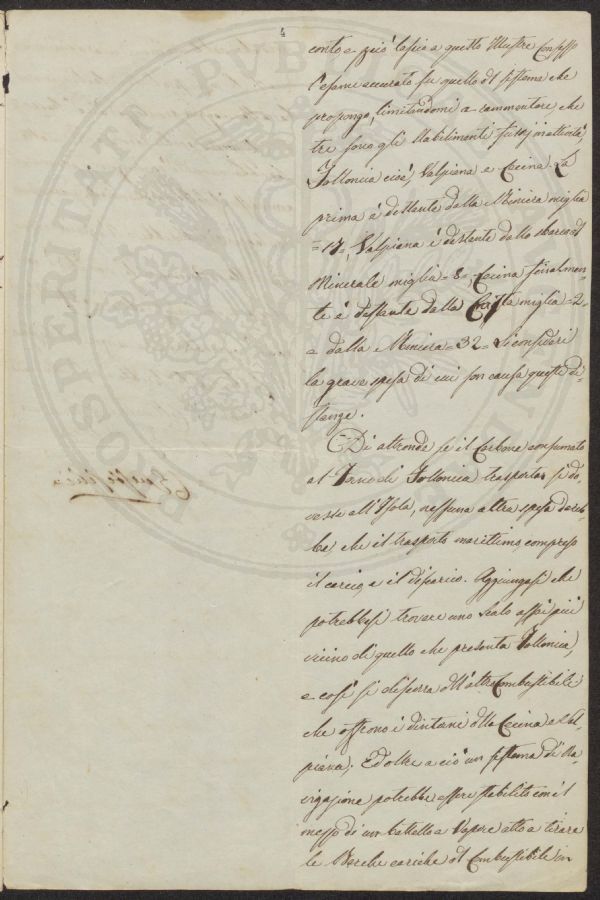 4
conto e perciò lascio a questo Illustre Consesso
l'esame accurato su quello del sistema che
propongo, limitandomi a rammentare che
tre sono gli stabilimenti fusorj in attività,
Follonica cioè, Valpiana e Cecina. La
prima è distante dalla Miniera miglia
=17=, Valpiana è distante dallo sbarco del
Minerale miglia =8=, Cecina finalmen-
te è distante dalla Costa miglia =2=
e dalla Miniera =32= si consideri
la grave spesa di cui son causa queste di-
stanze.
Di altronde se il Carbone consumato
al Forno di Follonica trasportar si do-
vesse all'Isola, nessuna altra spesa dareb-
be che il trasporto marittimo, compreso
il carico, e il discarico. Aggiungasi che
potrebbesi trovare uno scalo assai più
vicino di quello che presenta Follonica,
e così si disporrà dell'altro Combustibile
che offrono i dintorni della Cecina e Val-
piana. Ed oltre a ciò un sistema di Na-
vigazione potrebbe essere stabilito con il
mezzo di un battello a Vapore atto a tirare
le Barche cariche del Combustibile in
PROSPERITATI PUBLICAE